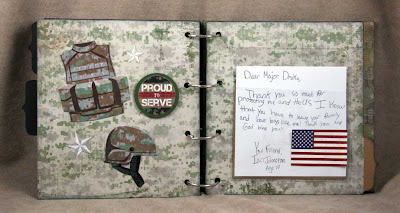 PROUD
TO
SERVE
Dear Major Drake,
Thank you so much for
protecting me and the US I know
that you have to leave your family
and
God bless you!
Your Friend,
Age 11